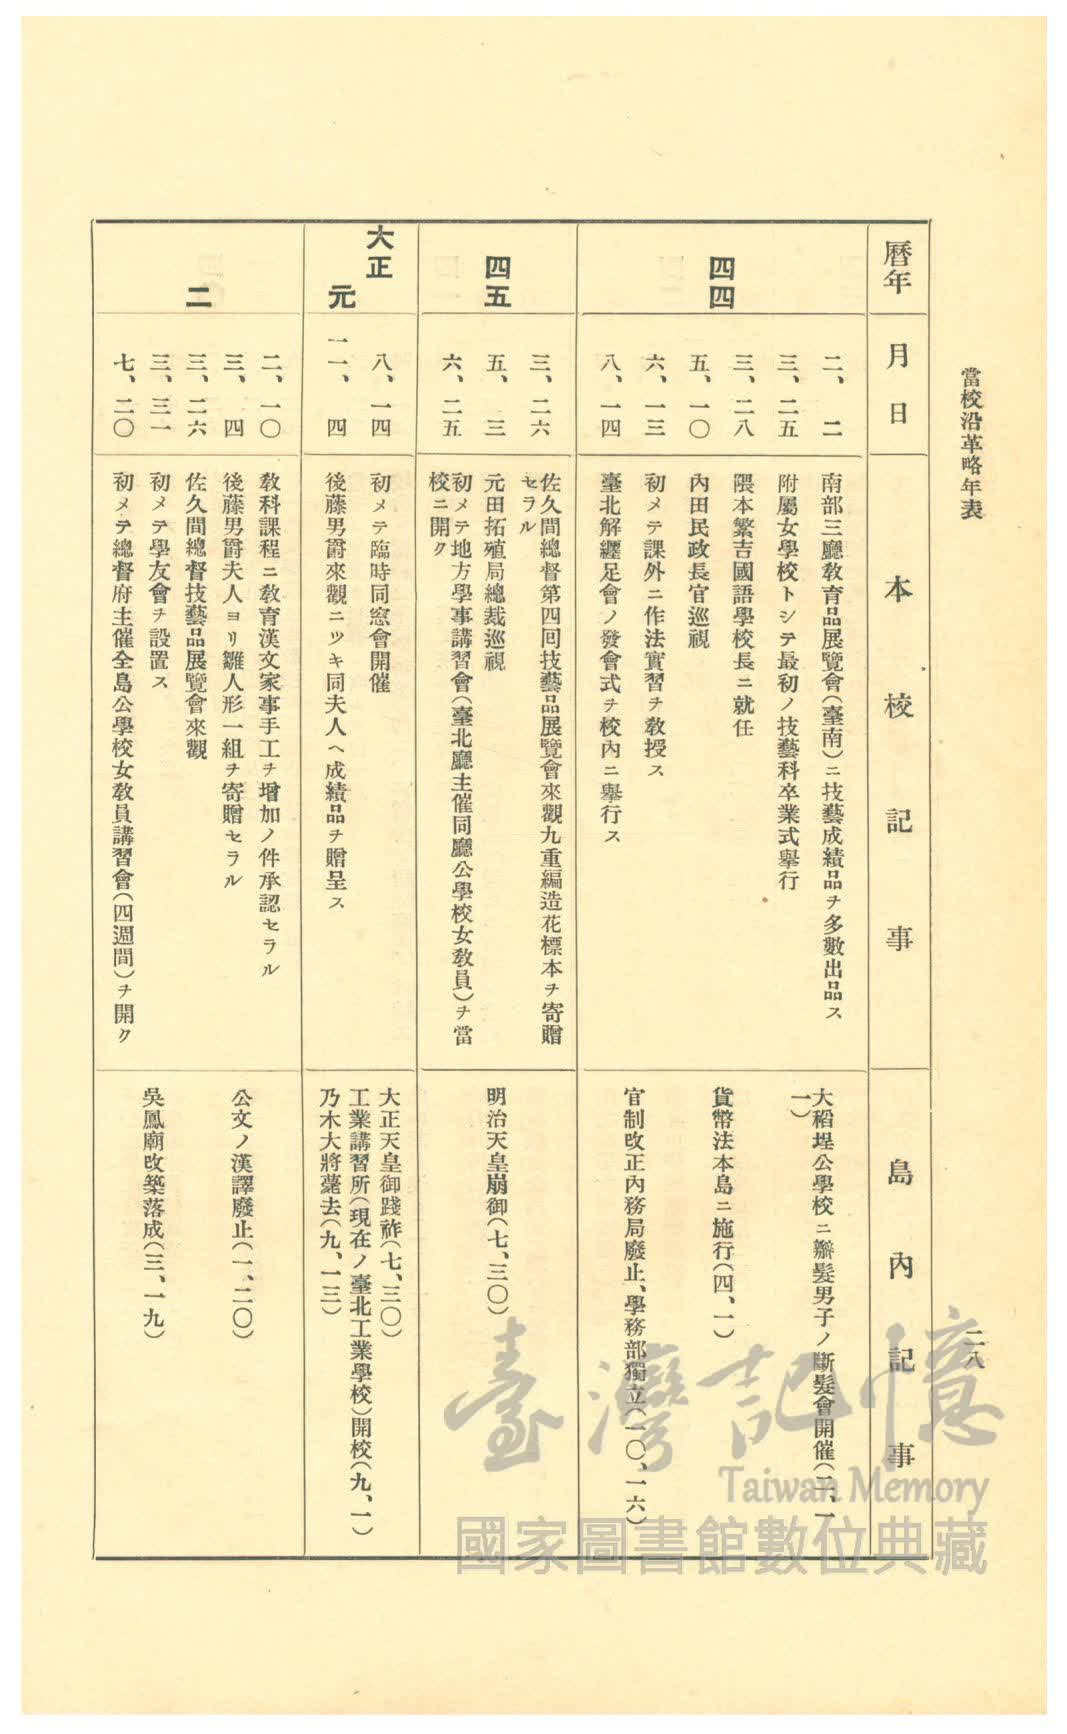 當校沿革略年表
二八
曆年
月日
本校記事
島內記事
四四
二、二
南部三廳敎育品展覽會(臺南)ニ技藝成績品ヲ多數出品ス
三、二五
附屬女學校トシテ最初ノ技藝科卒業式擧行
三、二八
隈本繁吉國語學校長ニ就任
五、一〇
內田民政長官巡視
六、一三
初メテ課外ニ作法實習ヲ敎授ス
八、一四
臺北解纏足會ノ發會式ヲ校內ニ擧行ス
大稻埕公學校ニ辮髮男子ノ斷髮會開催(二、一
一)
貨幣法本島ニ施行(四、一)
官制改正內務局廢止、學務部獨立(一〇、一六)
四五
三、二六
佐久間總督第四囘技藝品展覽會來觀九重編造花標本ヲ寄贈
セラル
五、三
元田拓殖局總裁巡視
六、二五
初メテ地方學事講習會(臺北廳主催同廳公學校女敎員)ヲ當
校ニ開ク
明治天皇崩御(七、三〇)
大正
元
八、一四
初メテ臨時同窓會開催
一一、四
後藤男爵來觀ニツキ同夫人ヘ成績品ヲ贈呈ス
大正天皇御踐祚(七、三〇)
工業講習所(現在ノ臺北工業學校)開校(九、一)
乃木大將薨去(九、一三)
二
二、一〇
敎科課程ニ敎育漢文家事手工ヲ增加ノ件承認セラル
三、四
後藤男爵夫人ヨリ雛人形一組ヲ寄贈セラル
三、二六
佐久間總督技藝品展覽會來觀
三、三一
初メテ學友會ヲ設置ス
七、二〇
初メテ總督府主催全島公學校女敎員講習會(四週間)ヲ開ク
公文ノ漢譯廢止(一、二〇)
吳鳳廟改築落成(三、一九)
臺灣記憶
Taiwan Memory
國家圖書館數位典藏